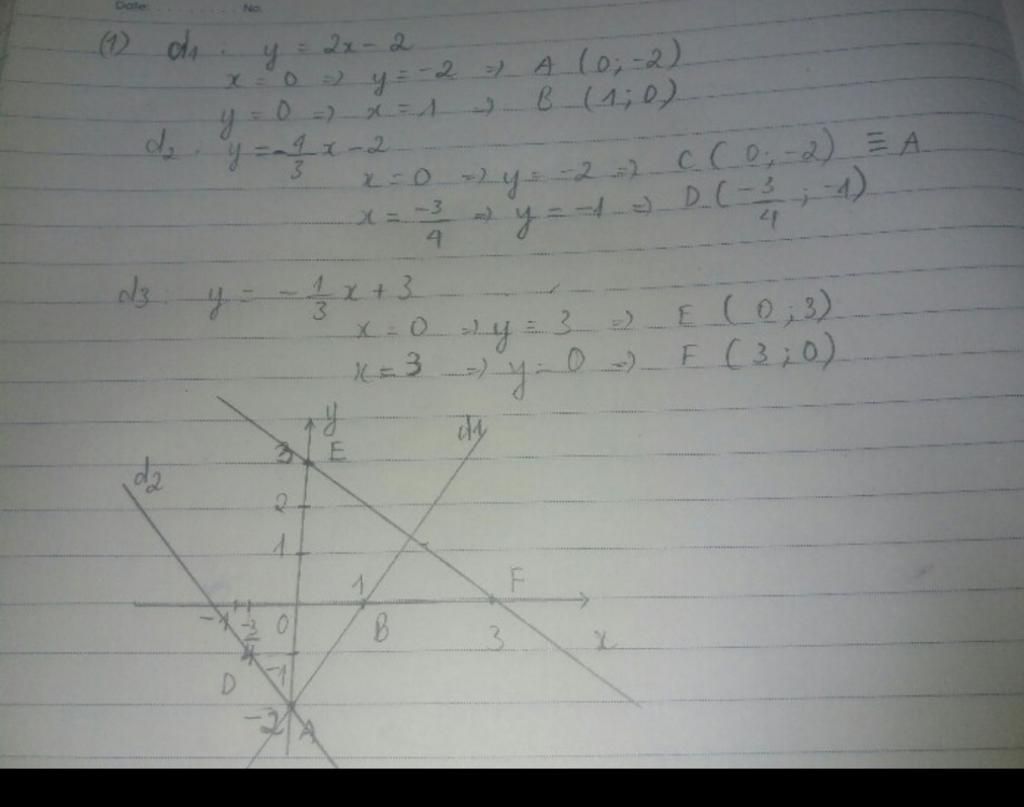 Date: ............ No.
(1) d1 : y = 2x - 2
x = 0 => y = -2 => A (0; -2)
y = 0 => x = 1 => B (1; 0)
d2 : y = -4/3 x - 2
x = 0 => y = -2 => C (0; -2) ≡ A
x = -3/4 => y = -1 => D (-3/4 ; -1)
d3 : y = -1/3 x + 3
x = 0 => y = 3 => E (0; 3)
x = 3 => y = 0 => F (3; 0)
y
d1
3 E
d2
2
1
1 F
-1 -3/4 0 B 3 x
D -1
-2 A